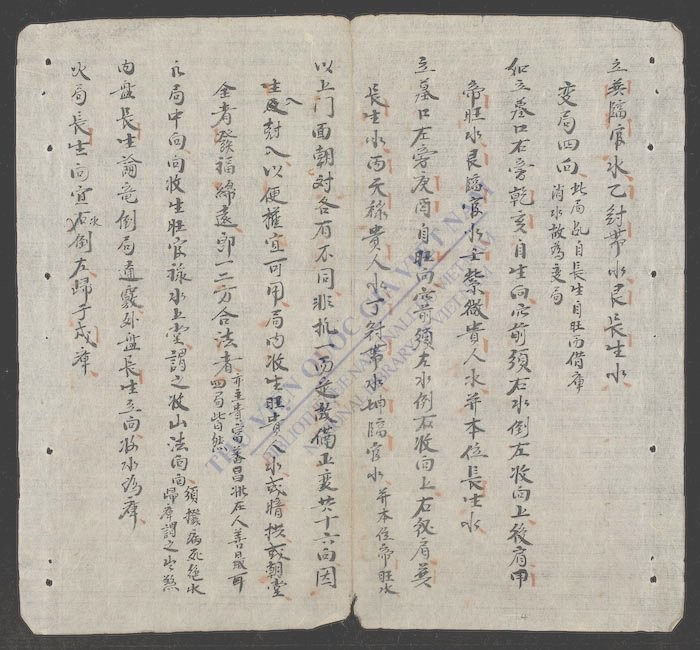 立巽臨官水乙冠帶水艮長生水
变局四向 此局乾自長生自旺而借庫消水故為变局
如立墓口右旁乾亥自生向宜前須右水倒左收向上後肩甲
帝旺水艮臨官水壬紫微貴人水并本位長生水
立墓口左旁庚酉自旺向宜前須左水倒右收向上右後肩巽
長生水丙天祿貴人水丁冠帶水坤臨官水 并本位帝旺水
以上门面朝对各有不同非执一而定故備正变共十六向因
生入尅入以便權宜可用局内收生旺貴人水或暗拱或朝堂
全者發福綿遠即一二方合法者 亦主貴富蕃昌壯在人善晟耳四局皆然
水局中向向收生旺官祿水上堂謂之收山法向向 須撥病死絶水歸庫謂之出煞
内盘長生論竜倒局通竅外盘長生立向收水為庫
火局長生向宜右水倒左歸于戌庫
THƯ VIỆN QUỐC GIA VIỆT NAM
BIBLIOTHÈQUE NATIONALE DU VIETNAM
NATIONAL LIBRARY OF VIETNAM